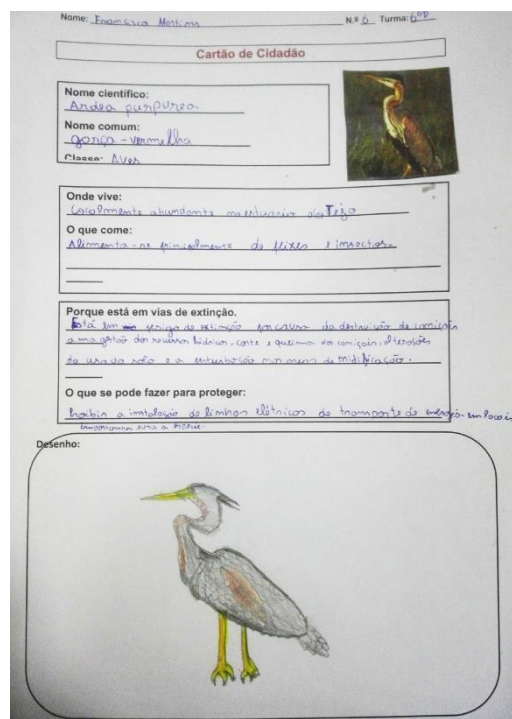 Nome: Francisco Martins N.º 6 Turma: 6ºD
Cartão de Cidadão
Nome científico:
Ardea purpurea
Nome comum:
garça-vermelha
Classe: Aves
Onde vive:
Localmente abundante no estuário do Tejo
O que come:
Alimenta-se principalmente de peixes e insectos
Porque está em vias de extinção.
Está em perigo de extinção por causa da destruição de caniçais
a má gestão dos recursos hídricos, corte e queima dos caniçais, alterações
do uso do solo e a perturbação nas áreas de nidificação.
O que se pode fazer para proteger:
Proibir a instalação de linhas elétricas de transporte de energia em locais
importantes para a espécie.
Desenho: